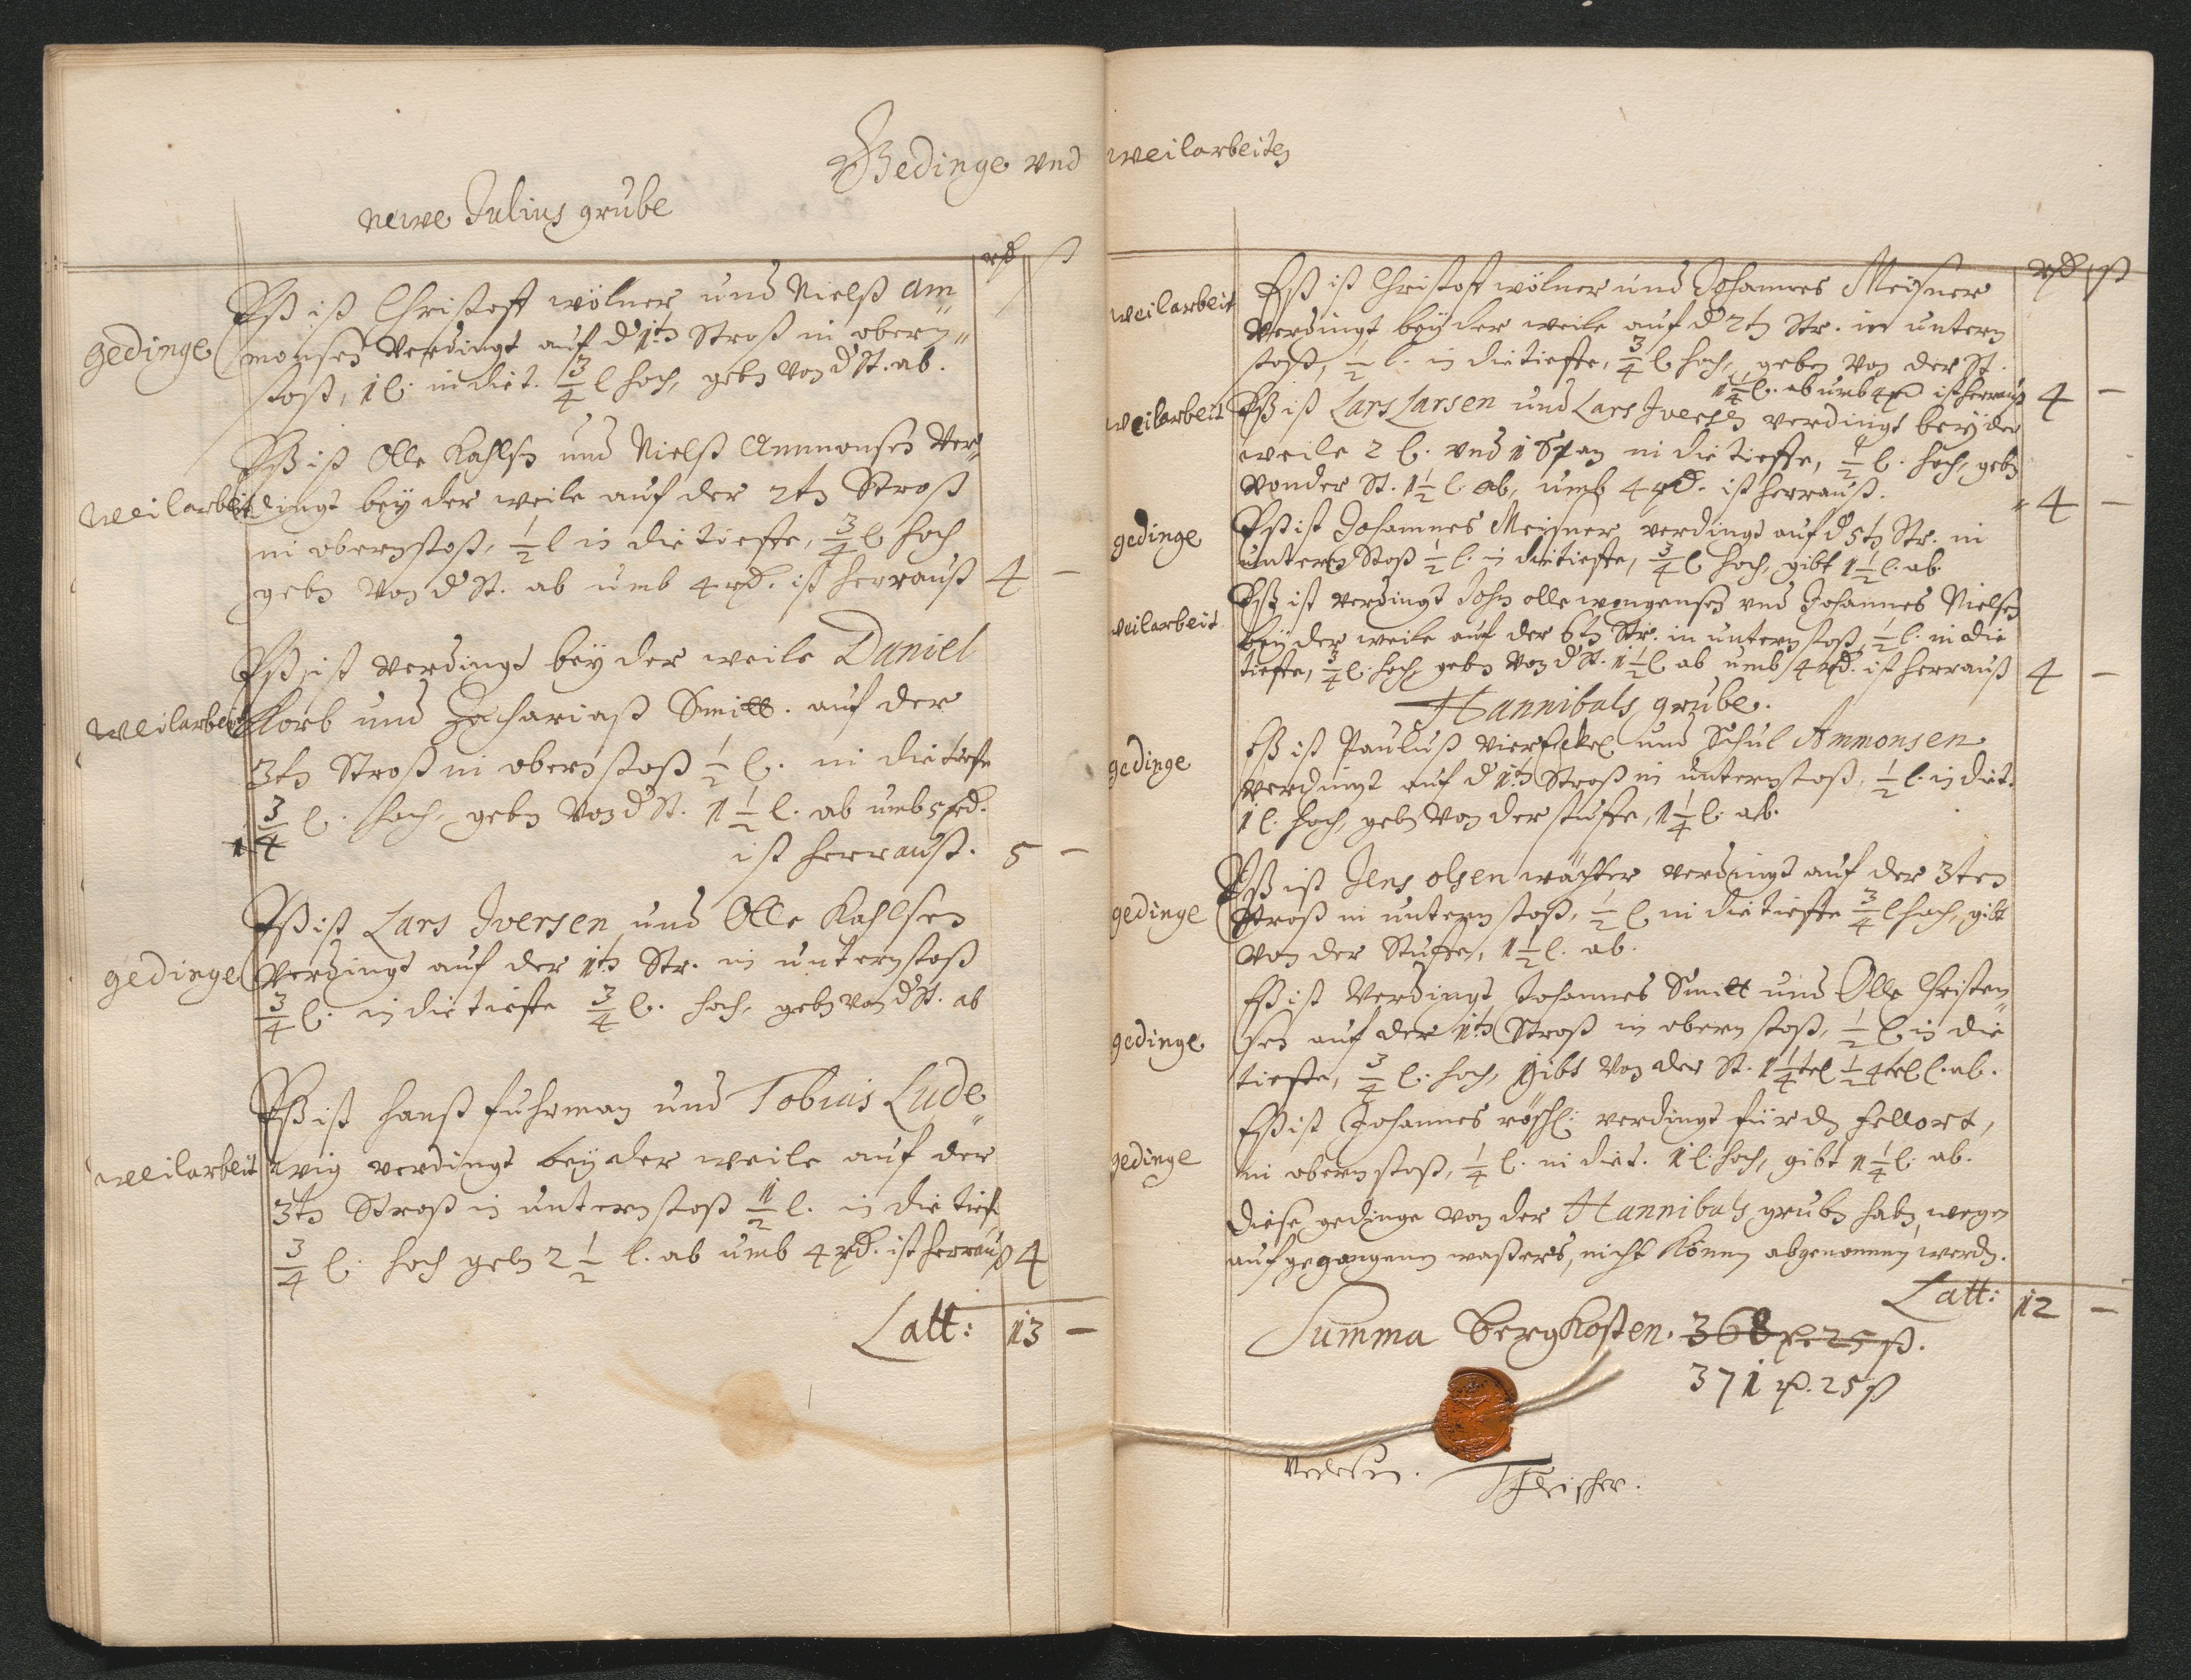 Gedinge vnd
newe Julius grube
rd ß
Eß ist Christoff wölner und Nielß Am„
gedinge monsen verdingt auf d 1tn Stroß in obern„
stoß, 1 l: in die t. 3/4 l hoch, gebn von d St. ab.
Eß ist Olle Kahlsn und Nielß Ammonsen ver„
weilarbeit dingt bey der weile auf der 2tn Stroß
in obernstoß, 1/2 l in die tieffe, 3/4 l hoch
gebn von d St. ab umb 4 rd. ist herrauß 4 –
Eß ist verdingt bey der weile Daniel
weilarbeit Korb und Zachariaß Smitt. auf der
3tn Stroß in obern stoß 1/2 l. in die tieffe
3/4 l. hoch, gebn von d St. 1 1/2 l. ab umb 5 rd.
ist herrauß. 5 –
Eß ist Lars Iversen und Olle Kahlsen
gedinge verdingt auf der 1tn Str. in unternstoß
3/4 l. in die tieffe 3/4 l. hoch, gebn von d St. ab
Eß ist Hanß fuhrman und Tobias Lude„
weilarbeit wig verdingt bey der weile auf der
3tn Stroß in unternstoß 1/2 l. in die tief
3/4 l. hoch gebn 2 1/2 l. ab umb 4 rd. ist herrauß 4
Latt: 13 –
weilarbeiten
rd ß
weilarbeit Eß ist Christoff wölner und Johannes Meisner
verdingt bey der weile auf d 2tn Str. in untern
stoß, 1/2 l. in die tieffe, 3/4 l hoch, geben von der St.
1 1/4 l. ab umb 4 rd ist herrauß 4 –
weilarbeit Eß ist Lars Larsen und Lars Iversen verdingt bey der
weile 2 l. vnd 1 Span in die tieffe, 1/2 l. hoch, gebn
von der St. 1 1/2 l ab, umb 4 rd. ist herrauß. 4 –
gedinge Eß ist Johannes Meisner verdingt auf d 5tn Str. in
untern Stoß 1/2 l. in die tieffe, 3/4 l hoch, gibt 1 1/2 l. ab.
weilarbeit Eß ist verdingt John olle wengensen vnd Johannes Nielsen
bey der weile auf der 6tn Str. in unternstoß, 1/2 l. in die
tieffe, 3/4 l. hoch gebn von d St. 1 1/2 l ab umb 4 rd. ist herrauß 4 –
Hannibals grube.
gedinge Eß ist Pauluß vierfickel und Schul Ammonsen
verdingt auf d 1tn Stroß in unternstoß, 1/2 l. in die t.
1 l. hoch, gebn von der stuffe, 1 1/4 l. ab.
gedinge Eß ist Jens olsen wächter verdingt auf der 3ten
Stroß in untern stoß, 1/2 l. in die tieffe 3/4 l hoch, gibt
von der Stuffe, 1 1/2 l. ab.
Eß ist verdingt Johannes Smitt und Olle Christen„
gedinge sen auf der 1tn Stroß in obern stoß, 1/2 l in die
tieffe, 3/4 l. hoch, gibt von der St. 1 1/4tel 1/2 4tel l. ab.
Eß ist Johannes röschl: verdingt für dn fellort,
gedinge in obernstoß, 1/4 l. in die t. 1 l. hoch, gibt 1 1/4 l. ab.
Diese gedinge von der Hannibals grubn habn wegen
aufgegangenen waßers, nicht können abgenommen werdn.
Latt: 12 –
Summa Bergkosten. 368 rd. 25 ß.
371 rd. 25 ß
Verlesen. Fleischer.